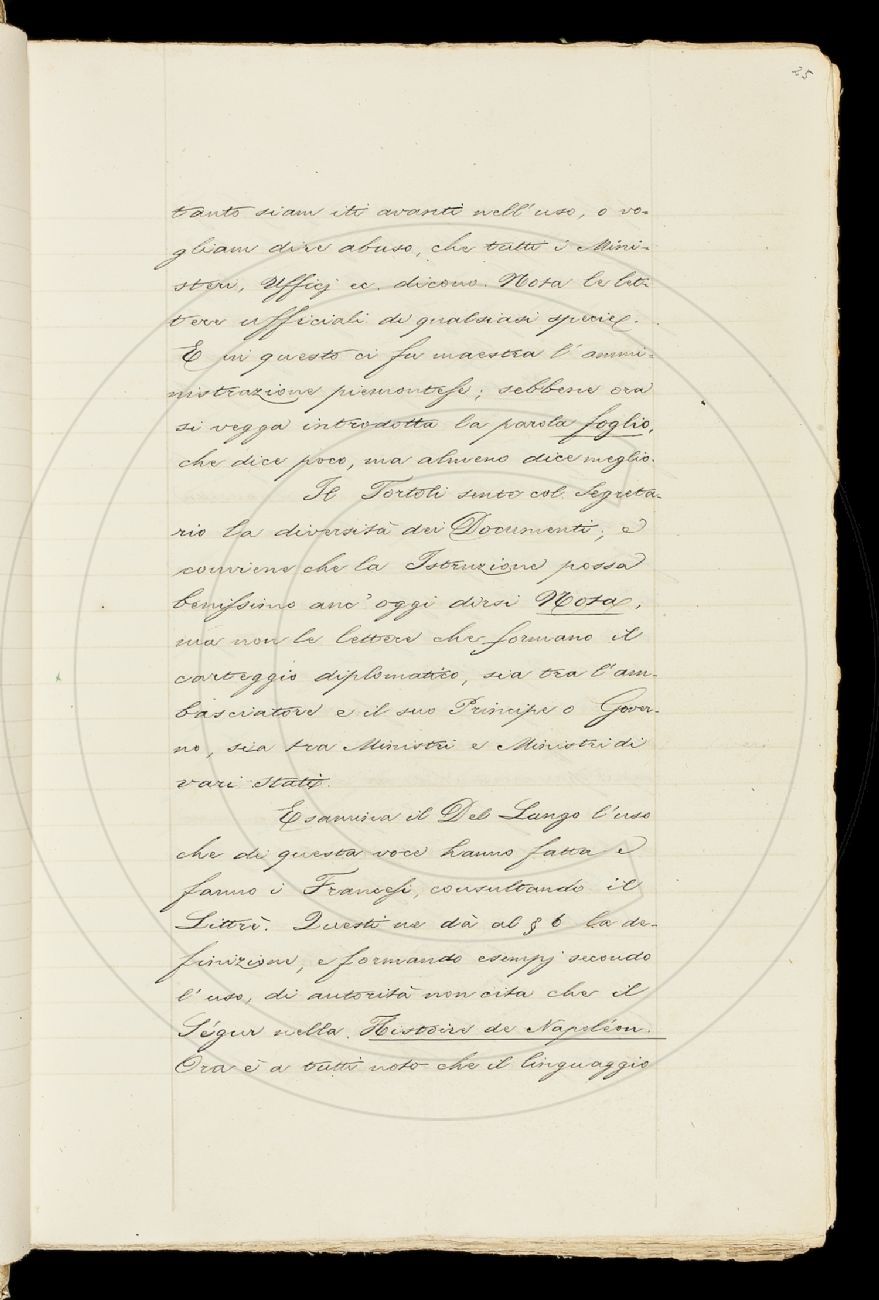 25
tanto siam iti avanti nell'uso, o vo-
gliam dire abuso, che tutti i Mini-
steri, Ufficj ec. dicono Nota le let-
tere ufficiali di qualsiasi specie.
E in questo ci fu maestra l'ammi-
nistrazione piemontese; sebbene ora
si vegga introdotta la parola foglio,
che dice poco, ma almeno dice meglio.
Il Tortoli sente col Segreta-
rio la diversità dei Documenti; e
conviene che la Istruzione possa
benissimo anc'oggi dirsi Nota,
ma non le lettere che formano il
carteggio diplomatico, sia tra l'am-
basciatore e il suo Principe o Gover-
no, sia tra Ministri e Ministri di
vari Stati.
Esamina il Del Lungo l'uso
che di questa voce hanno fatto e
fanno i Francesi, consultando il
Littré. Questi ne dà al § 6 la de-
finizione, e formando esempj secondo
l'uso, di autorità non cita che il
Ségur nella Histoire de Napoléon.
Ora è a tutti noto che il linguaggio